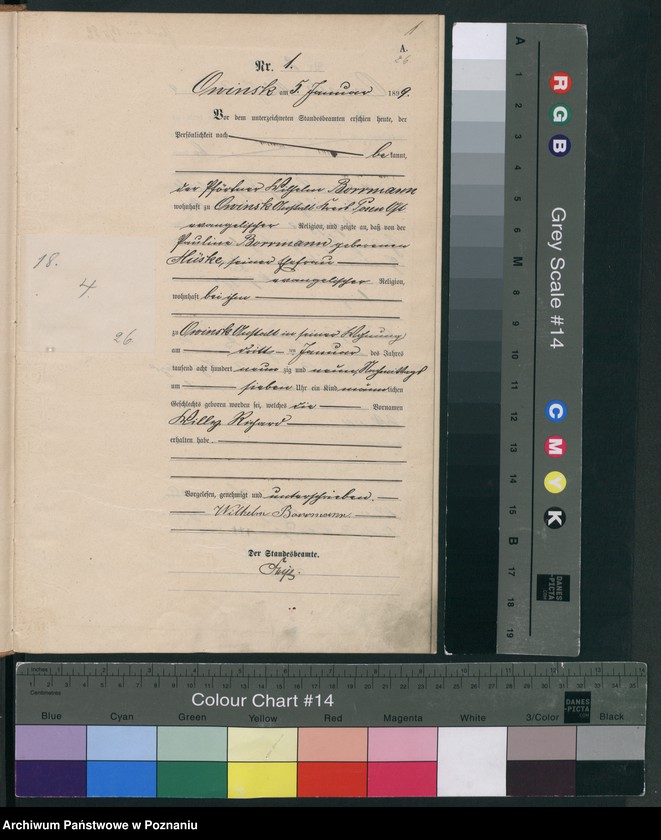 1
A.
26
Nr. 1.
Owinsk am 5. Januar 1899.
Vor dem unterzeichneten Standesbeamten erschien heute, der
Persönlichkeit nach
bekannt,
der Pförtner Wilhelm Borrmann
wohnhaft zu Owinsk Anstalt Kreis Posen Ost
evangelischer Religion, und zeigte an, daß von der
Pauline Borrmann geborenen
Hüske, seiner Ehefrau
evangelischer Religion,
wohnhaft bei ihm
18.
4.
26
zu Owinsk Anstalt in seiner Wohnung
am dritten Januar des Jahres
tausend acht hundert neunzig und neun, Nachmittags
um sieben Uhr ein Kind männlichen
Geschlechts geboren worden sei, welches die Vornamen
Willy Richard
erhalten habe
Vorgelesen, genehmigt und unterschrieben.
Wilhelm Borrmann
Der Standesbeamte.
Grey Scale #14
A 1 2 3 4 5 6 M 8 9 10 11 12 13 14 15 B 17 18 19
R
G
B
C
M
Y
K
DANES
PICTA
.COM
inches
Centimetres
Colour Chart #14
DANES
-PICTA
.COM
Blue Cyan Green Yellow Red Magenta White 3/Color Black
Archiwum Państwowe w Poznaniu